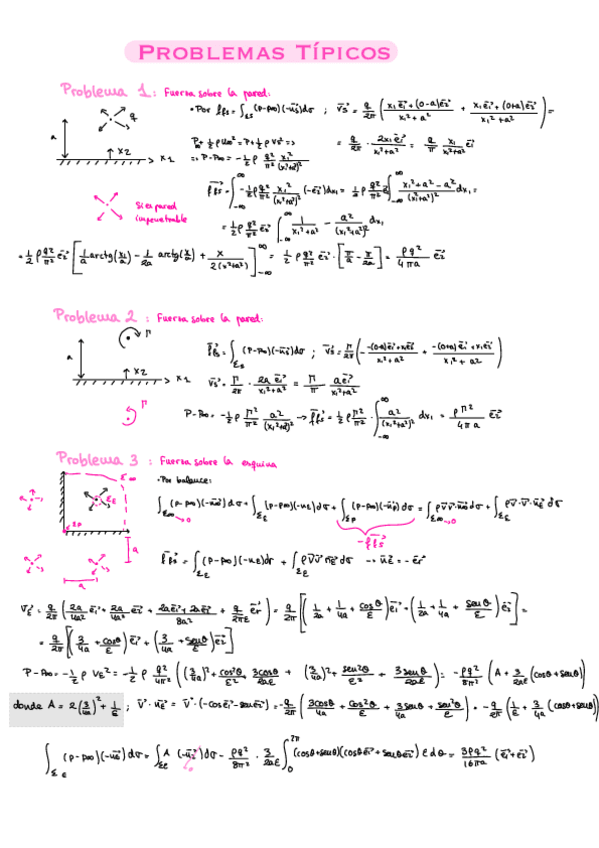 PROBLEMAS TÍPICOS
Problema 1: Fuerza sobre la pared:
• Por f_fs = ∫_Σs (P-P∞)(-n_s)dσ ; V_s = q/2π ( (x₁e₁+(0-a)e₂)/(x₁²+a²) + (x₁e₁+(0+a)e₂)/(x₁²+a²) ) =
a
q
x2
x1
P∞ + ½ρU∞² = P + ½ρVs² =>
= q/2π · 2x₁e₁/(x₁²+a²) = q/π x₁/(x₁²+a²) e₁
=> P-P∞ = -½ρ q²/π² x₁²/(x₁²+a²)²
Si es pared
impenetrable
f_fs = ∫_{-∞}^{∞} -½ρ q²/π² x₁²/(x₁²+a²)² (-e₂)dx₁ = ½ρ q²/π² e₂ ∫_{-∞}^{∞} (x₁²+a²-a²)/(x₁²+a²)² dx₁ =
= ½ρ q²/π² e₂ ∫_{-∞}^{∞} 1/(x₁²+a²) - a²/(x₁²+a²)² dx₁
= ½ρ q²/π² e₂ [ 1/a arctg(x₁/a) - 1/2a arctg(x/a) + x/2(x²+a²) ]_{-∞}^{∞} = ½ρ q²/π² e₂ · [π/a - π/2a] = ρq²/4πa e₂
Problema 2: Fuerza sobre la pared:
Γ
a
x2
x1
f_fs = ∫_Σs (P-P∞)(-n_s)dσ ; V_s = Γ/2π ( -(-(0-a)e₁+x₁e₂)/(x₁²+a²) + (-(0+a)e₁+x₁e₂)/(x₁²+a²) )
V_s = Γ/2π · 2a e₁/(x₁²+a²) = Γ/π a e₁/(x₁²+a²)
Γ
P-P∞ = -½ρ Γ²/π² a²/(x₁²+a²)² → f_fs = ½ρ Γ²/π² · ∫_{-∞}^{∞} a²/(x₁²+a²)² dx₁ = ρΓ²/4πa e₂
Problema 3: Fuerza sobre la esquina
• Por balance:
Σ∞
Σε
Σp
a
a
∫_Σ∞ (P-P∞)(-n∞)dσ + ∫_Σε (P-P∞)(-nε)dσ + ∫_Σp (P-P∞)(-n_p)dσ = ∫_Σ∞ ρV V·n∞dσ + ∫_Σε ρV·V·nε dσ
→0
-f_fs
→0
f_fs = ∫_Σε (P-P∞)(-nε)dσ + ∫_Σε ρV V nε dσ → nε = -e_r
Vε = q/2π ( 2a/4a² e₁ + 2a/4a² e₂ + (2ae₁+2ae₂)/8a² + q/2πε e_r ) = q/2π [ (1/2a + 1/4a + cosθ/ε)e₁ + (1/2a + 1/4a + senθ/ε)e₂ ] =
= q/2π [ (3/4a + cosθ/ε)e₁ + (3/4a + senθ/ε)e₂ ]
P-P∞ = -½ρ Vε² = -½ρ q²/4π² ( (3/4a)² + cos²θ/ε² + 3cosθ/2aε + (3/4a)² + sen²θ/ε² + 3senθ/2aε ) = -ρq²/8π² (A + 3/2aε (cosθ+senθ))
donde A = 2(3/4a)² + 1/ε ; V·nε = V·(-cosθe₁-senθe₂) = -q/2π ( 3cosθ/4a + cos²θ/ε + 3senθ/4a + sen²θ/ε ) = -q/2π ( 1/ε + 3/4a (cosθ+senθ) )
∫_Σε (P-P∞)(-nε)dσ = ∫_Σε A (-nε)dσ - ρq²/8π² · 3/2aε ∫_0^{2π} (cosθ+senθ)(cosθe₁+senθe₂) ε dθ = 3ρq²/16πa (e₁+e₂)
→0